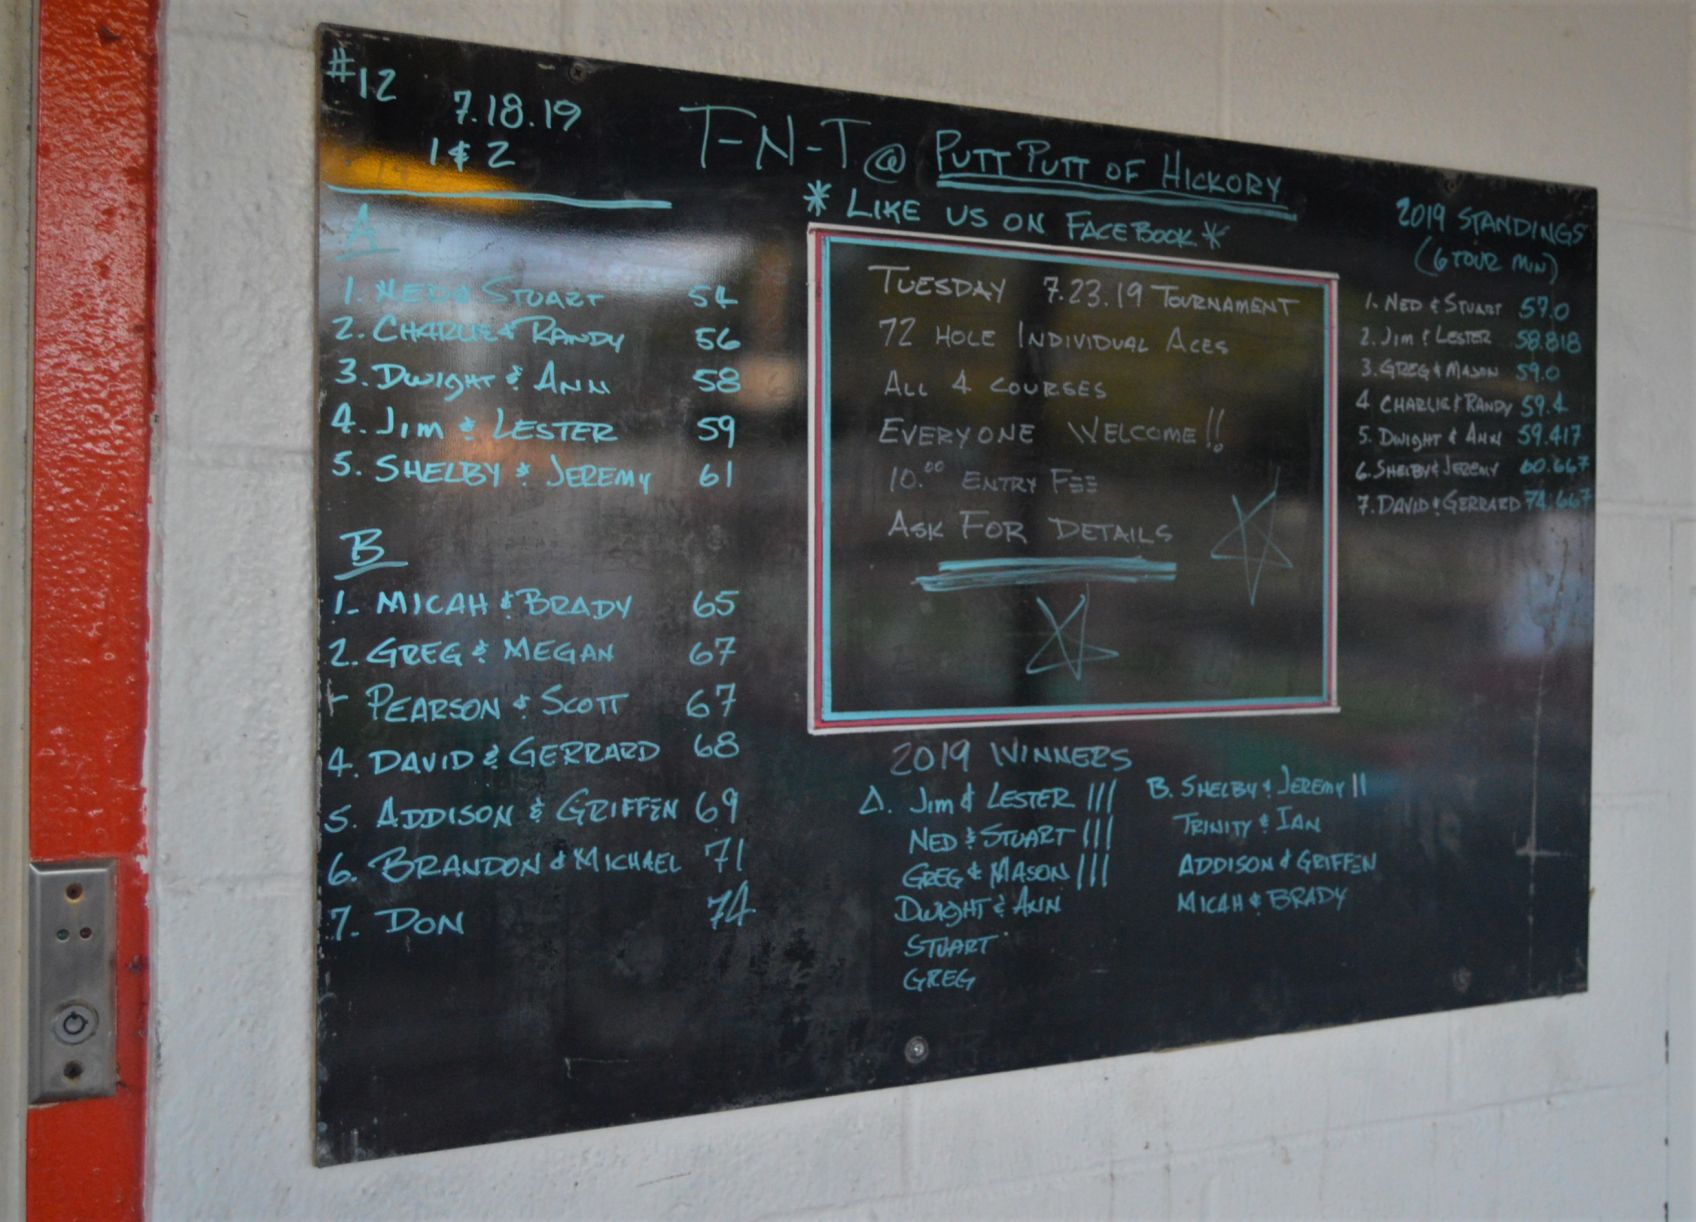 #12
7.18.19
1 & 2
T-N-T @ PUTT PUTT OF HICKORY
* LIKE US ON FACEBOOK *
A
1. NED & STUART 54
2. CHARLIE & RANDY 56
3. DWIGHT & ANN 58
4. JIM & LESTER 59
5. SHELBY & JEREMY 61
B
1- MICAH & BRADY 65
2. GREG & MEGAN 67
- PEARSON & SCOTT 67
4. DAVID & GERRARD 68
5. ADDISON & GRIFFEN 69
6. BRANDON & MICHAEL 71
7. DON 74
TUESDAY 7.23.19 TOURNAMENT
72 HOLE INDIVIDUAL ACES
ALL 4 COURSES
EVERYONE WELCOME!!
10.00 ENTRY FEE
ASK FOR DETAILS
2019 WINNERS
A. JIM & LESTER |||
NED & STUART |||
GREG & MASON |||
DWIGHT & ANN
STUART
GREG
B. SHELBY & JEREMY ||
TRINITY & IAN
ADDISON & GRIFFEN
MICAH & BRADY
2019 STANDINGS
(6 TOUR MIN)
1. NED & STUART 57.0
2. JIM & LESTER 58.818
3. GREG & MASON 59.0
4 CHARLIE & RANDY 59.4
5. DWIGHT & ANN 59.417
6. SHELBY & JEREMY 60.667
7. DAVID & GERRARD 74.667